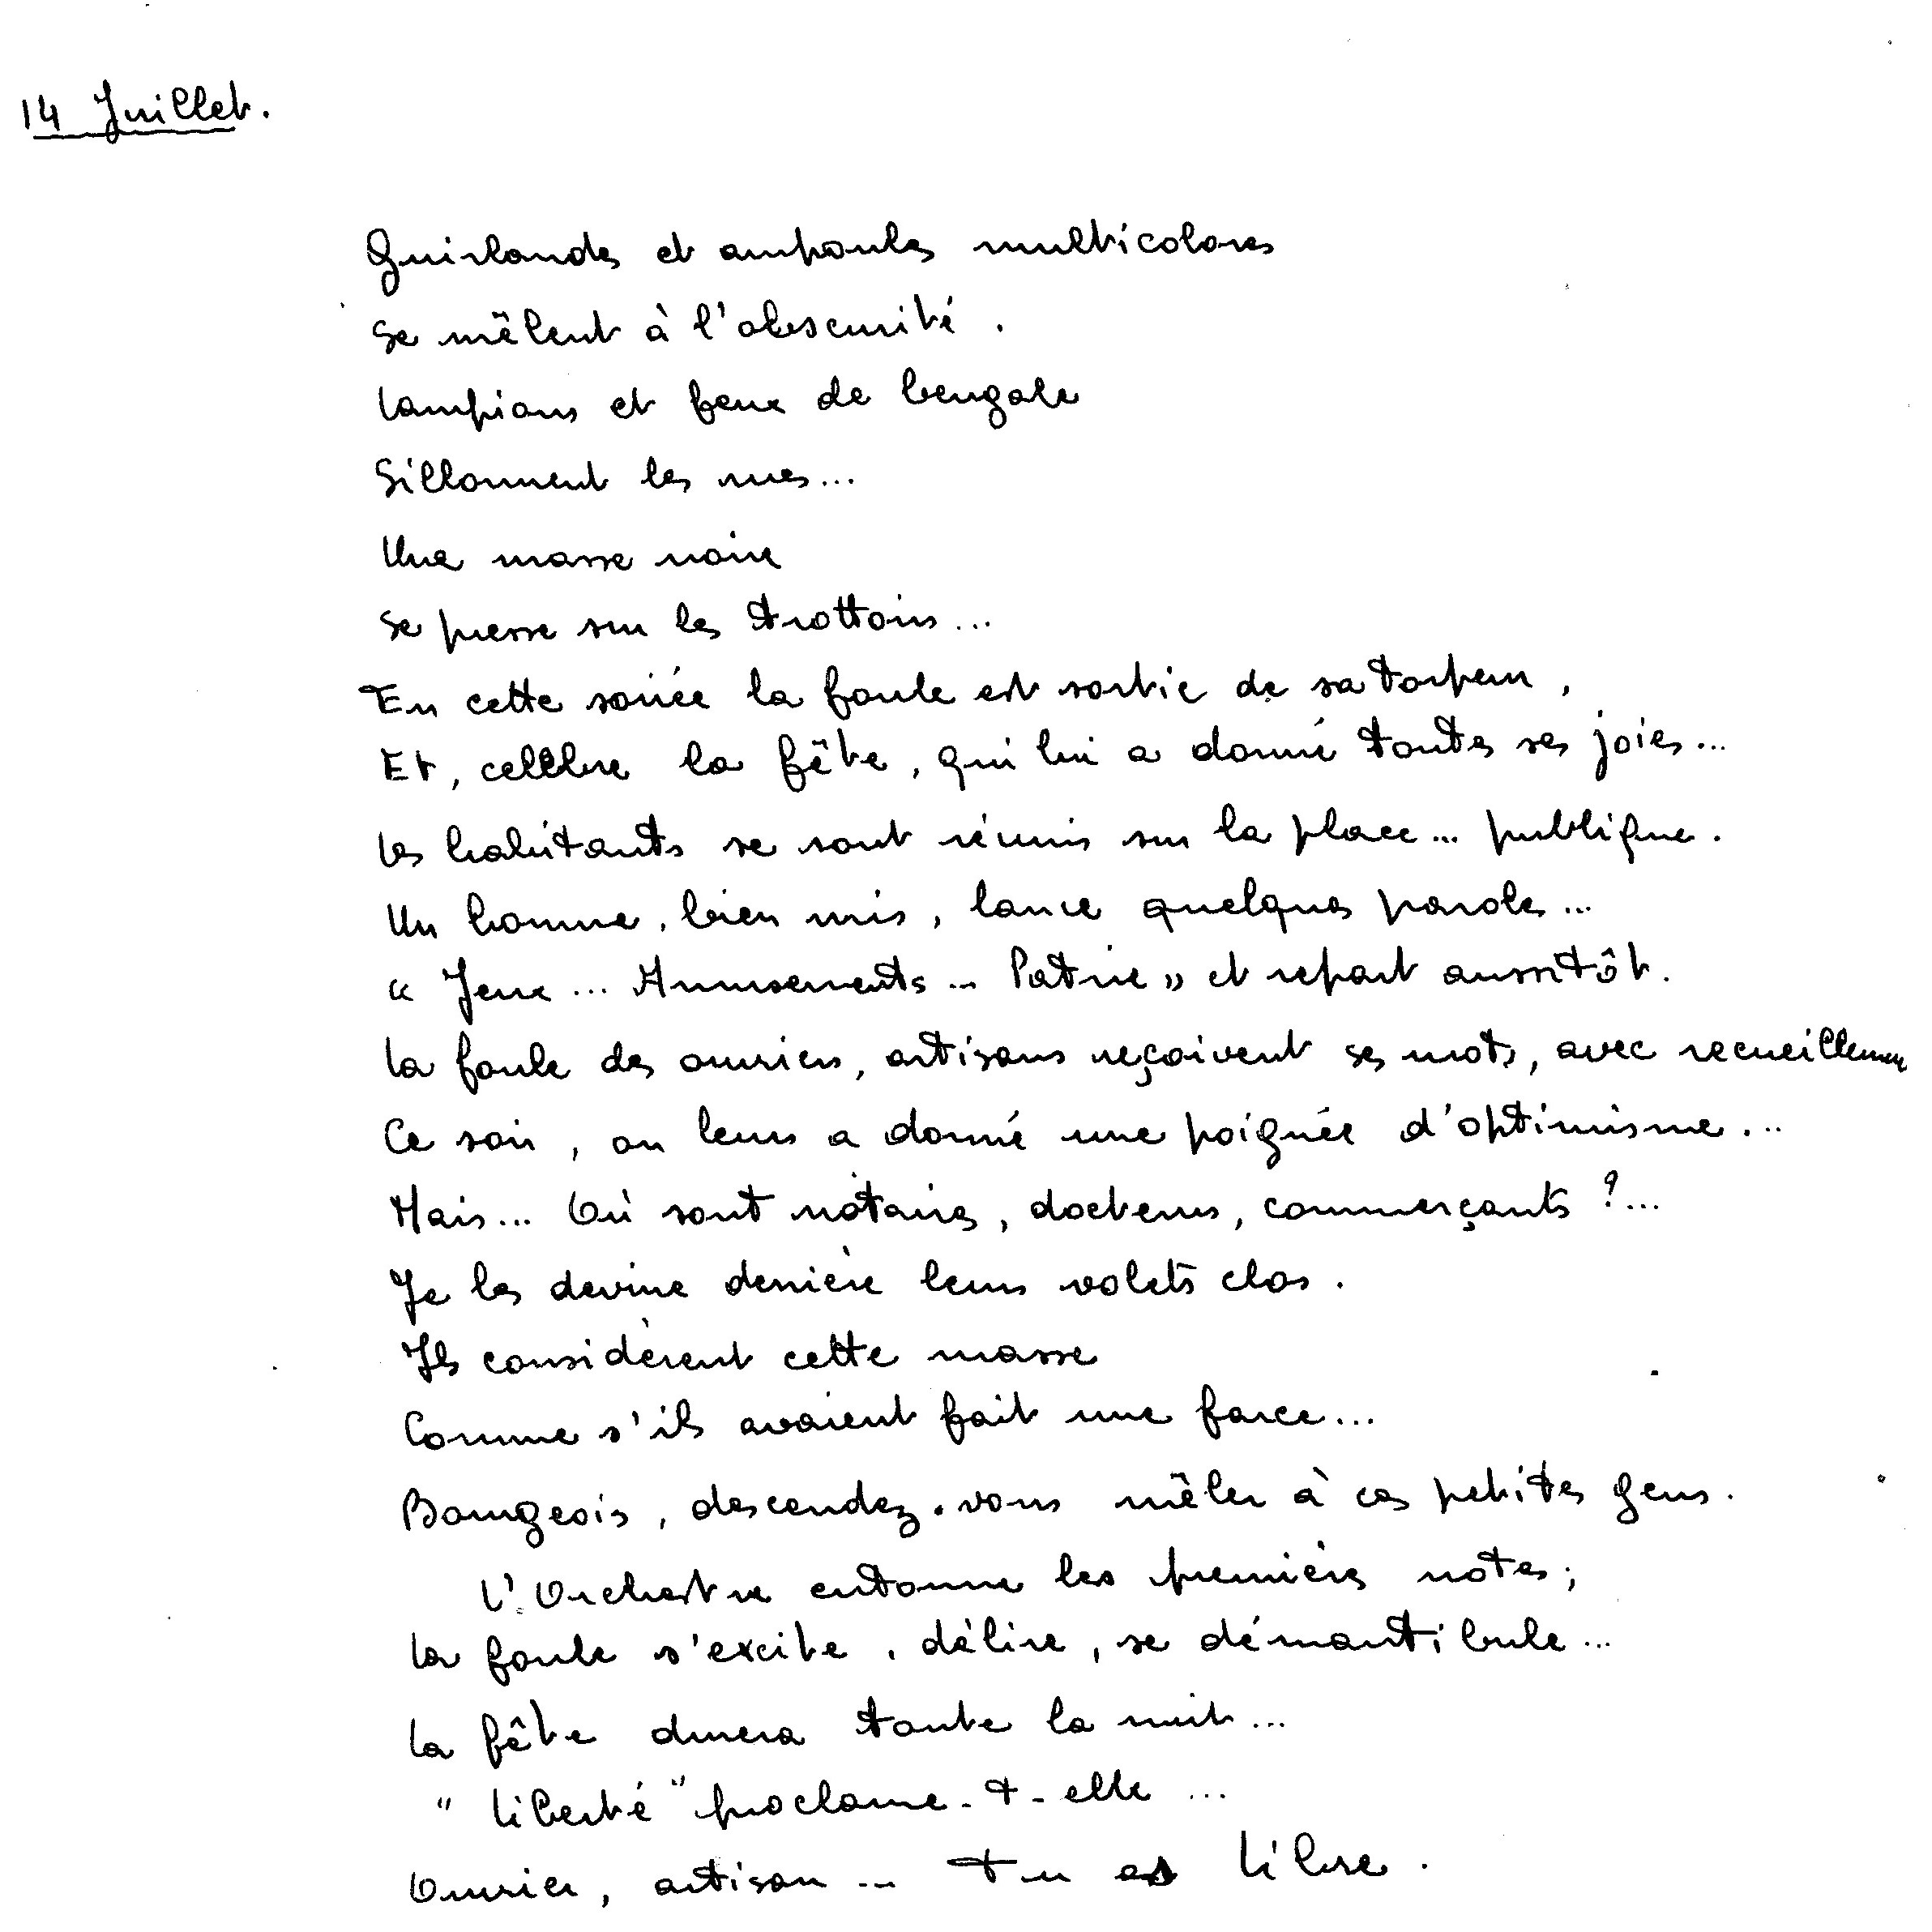 14 Juillet.
Guirlandes et ampoules multicolores
Se mêlent à l'obscurité.
Lampions et feux de bengale
Sillonnent les rues...
Une masse noire
Se presse sur les trottoirs...
En cette soirée la foule est sortie de sa torpeur,
Et, celèbre la fête, qui lui a donné toutes ses joies...
Les habitants se sont réunis sur la place... publique.
Un homme, bien mis, lance quelques paroles...
« Jeux... Amusements... Patrie » et repart aussitôt.
La foule des ouvriers, artisans reçoivent ses mots, avec recueillemen
Ce soir, on leurs a donné une poignée d'optimisme...
Mais... Où sont notaires, docteurs, commerçants ?...
Je les devine derrière leurs volets clos.
Ils considèrent cette masse
Comme s'ils avaient fait une farce...
Bourgeois, descendez-vous mêler à ces petites gens.
L'Orchestre entonne les premières notes;
La foule s'excite, délire, se démantibule...
La fête durera toute la nuit...
"Liberté" proclame-t-elle...
Ouvrier, artisan... tu es Libre.